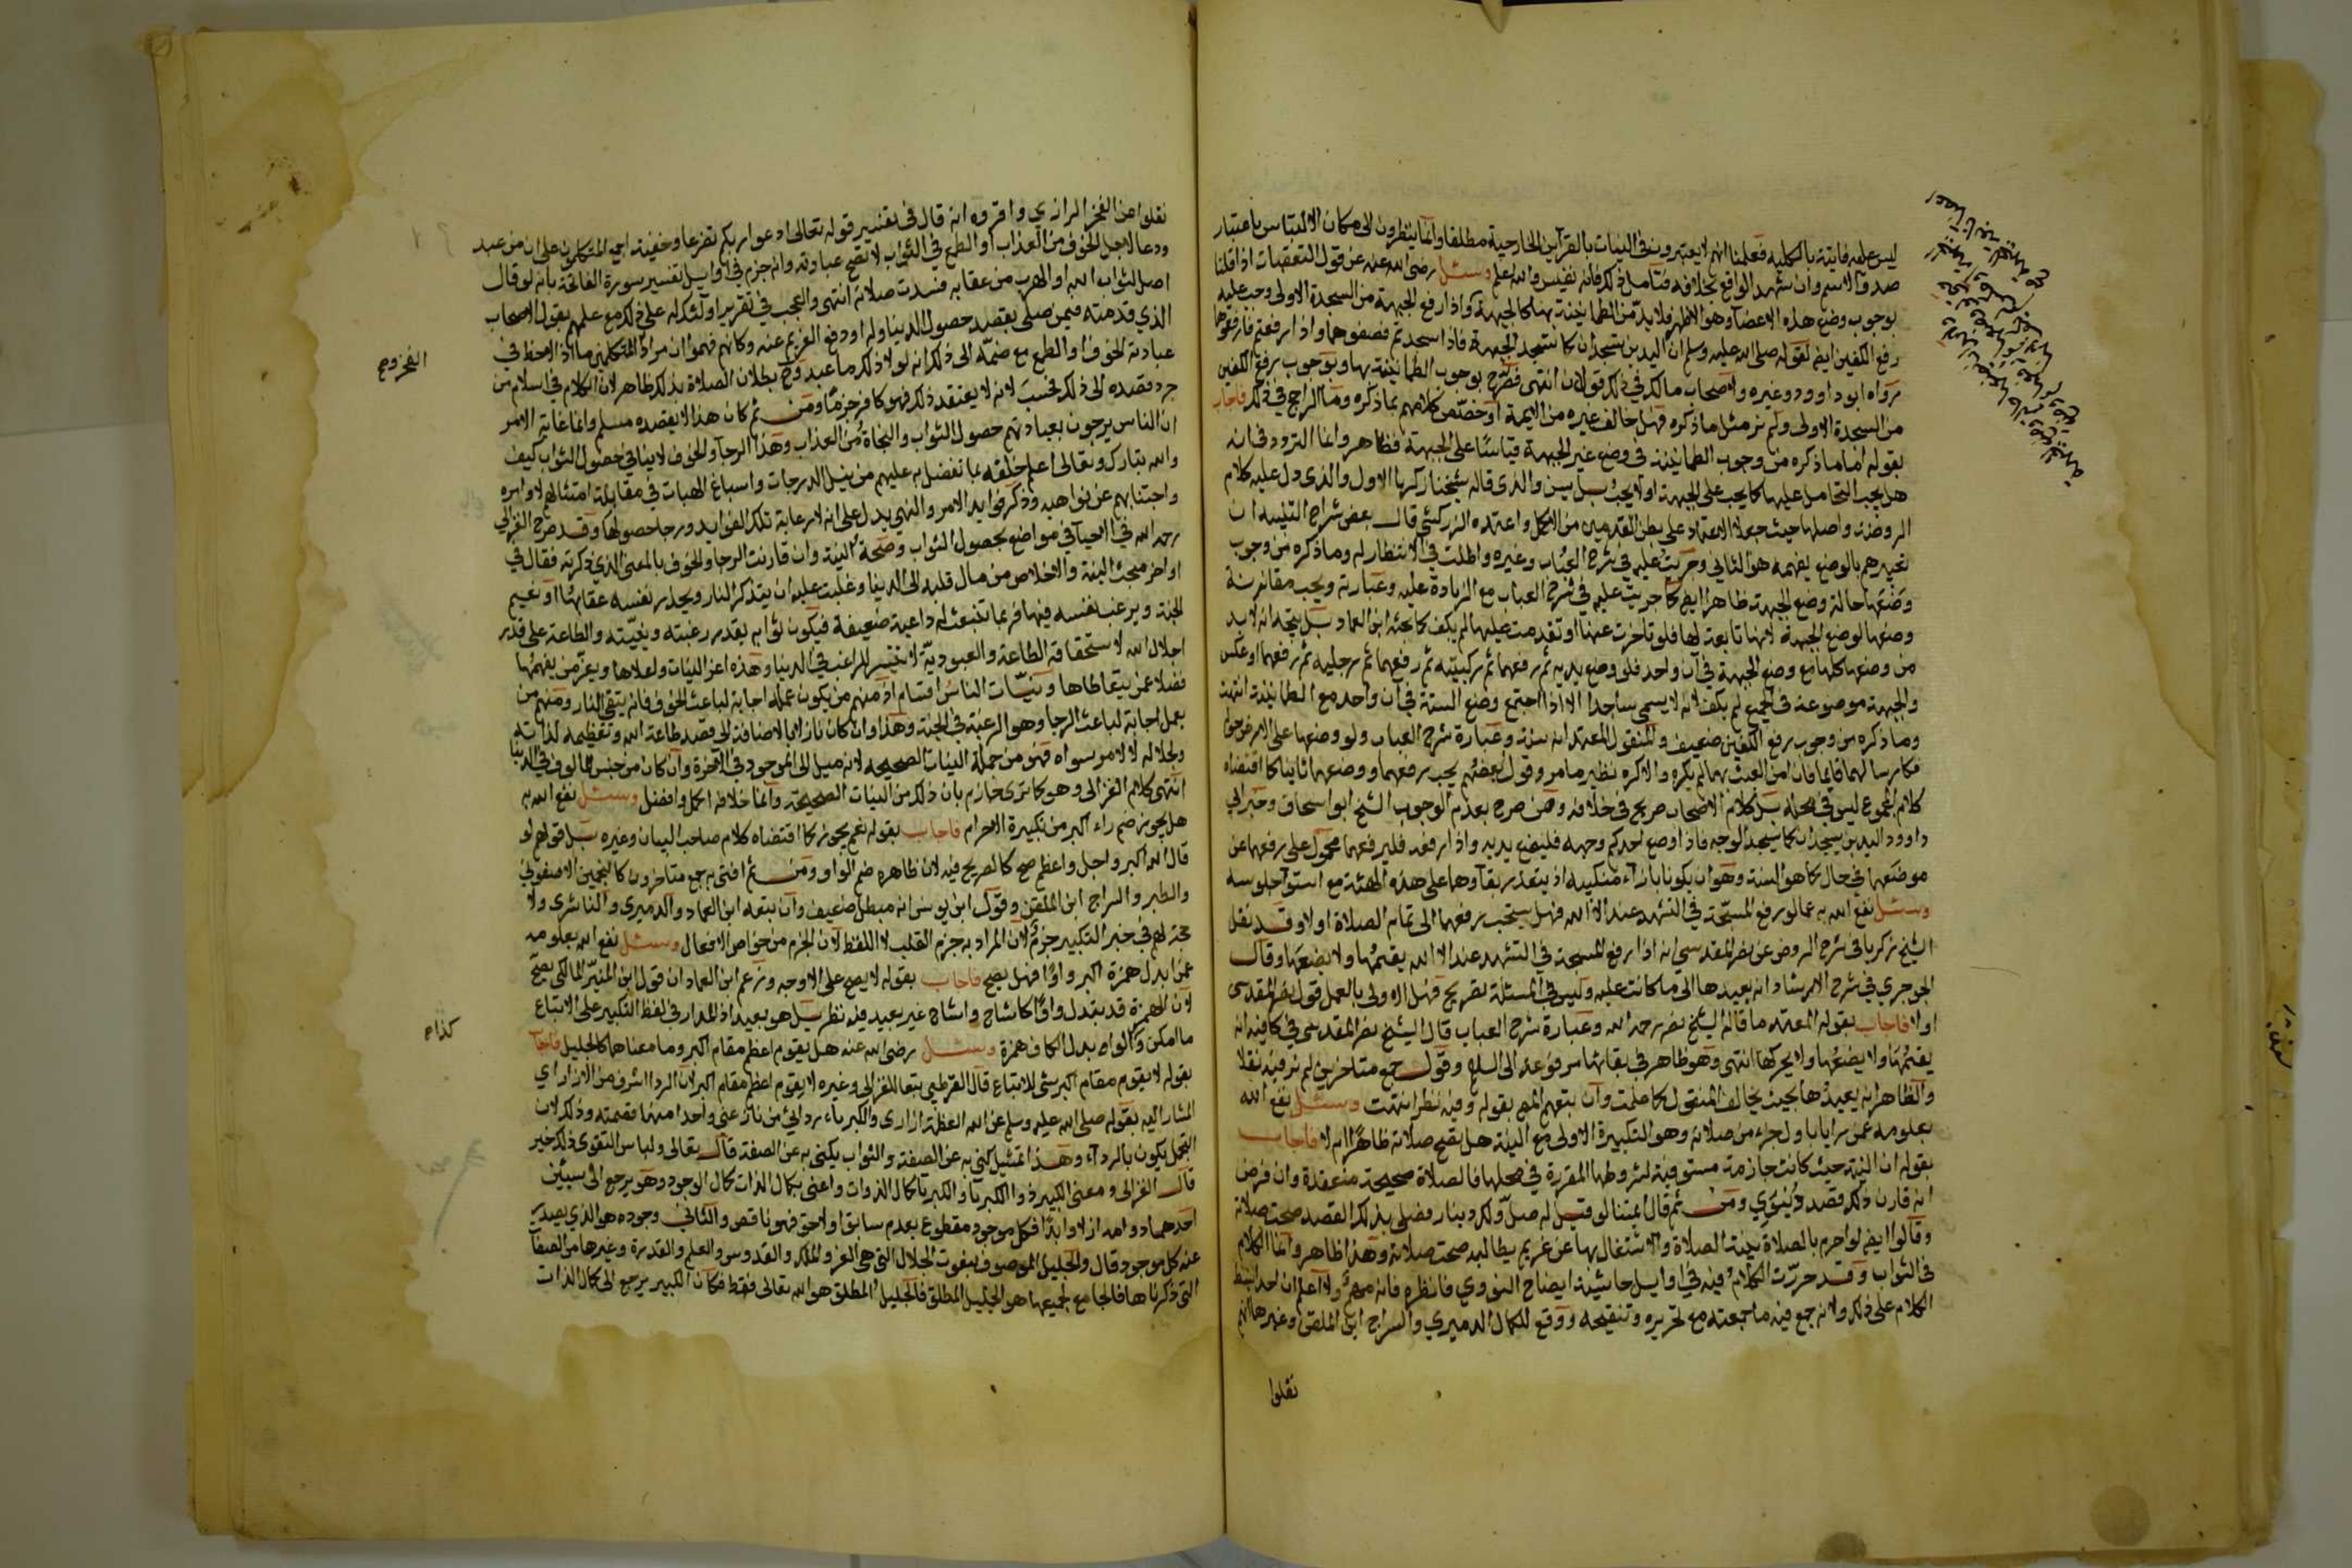 ليس عليه فايتة بالكلية فعلمنا انهم لا يعتبرون في النيات بالقرآين الخارجية مطلقا وانما ينظرون الى مكان الالتباس باعتبار
صدق الاسم وان شهد الواقع بخلافه فتامل ذلك فانه نفيس والله اعلم وسئل رضي الله عنه عن قول التعقبات اذا قلنا
بوجوب وضع هذه الاعضا وهو الاظهر فلا بد من الطمانينة بها كالجبهة واذا رفع الجبهة من السجدة الاولى وجب عليه
رفع الكفين ايض لقوله صلى الله عليه وسلم ان اليدين تسجدان كما تسجد الجبهة فاذا سجدتم فضعوهما واذا رفعتم فارفعوهما
رواه ابو داوود وغيره ولاصحاب مالك في ذلك قولان انتهى فصرح بوجوب الطمانينة بها وبوجوب رفع الكفين
من السجدة الاولى ولم نر مثل ما ذكره فهل خالف غيره من الايمة او خصص كلامهم بما ذكره وما الراجح في ذلك فاجاب
بقوله اما ما ذكره من وجوب الطمانينة في وضع غير الجبهة قياسا على الجبهة فظاهر وانما التردد في انه
هل يجب التحامل عليها كما يجب على الجبهة او لا يجب بل يسن والذي قاله شيخنا زكريا الاول والذي دل عليه كلام
الروضة واصلها حيث جعلا الاعتماد على بطن القدمين من الاكمل واعتمده الزركشي قال بعض شراح التنبيه ان
تعبيرهم بالوضع يفهمه هو الثاني وجريت عليه في شرح العباب وغيره واطلت في الانتظار له وما ذكره من وجوب
وضعها حالة وضع الجبهة ظاهر ايض كما جريت عليه في شرح العباب مع الزيادة عليه وعبارته ويجب مقارنة
وضعها لوضع الجبهة لانها تابعة لها فلو تاخرت عنها او تقدمت عليها لم يكف كما بحثه ابن العماد بل يتجه انه لا بد
من وضعها كلها مع وضع الجبهة في آن واحد فلو وضع يديه ثم رفعهما ثم ركبتيه ثم رفعهما ثم رجليه ثم رفعهما او عكس
والجبهة موضوعة في الجميع لم يكف لانه لا يسمى ساجدا الا اذا اجتمع وضع الستة في آن واحد مع الطمانينة انتهت
وما ذكره من وجوب رفع الكفين ضعيف والمنقول المعتمد انه سنة وعبارة شرح العباب ولو وضعهما على الارض حولها
فكارسالهما قايما فان امن العبث بهما لم يكره والا كره نظير ما مر وقول بعضهم يجب رفعهما ووضعهما ثانيا كما اقتضاه
كلام المجموع ليس في محله بل كلام الاصحاب صريح في خلافه وممن صرح بعدم الوجوب الشيخ ابو اسحاق وخبر ابي
داوود اليدين يسجدان كما يسجد الوجه فاذا وضع احدكم وجهه فليضع يديه واذا رفعه فليرفعهما محمول على رفعهما عن
موضعهما في حال كما هو السنة وهو ان يكونا بازاء منكبيه اذ يتعذر بقآوهما على هذه الهيئة مع استوآ جلوسه
وسئل نفع الله به عما لو رفع المسبحة في التشهد عند الا الله فهل يستحب رفعها الى تمام الصلاة او لا وقد نقل
الشيخ زكريا في شرح الروض عن نصر المقدسي انه اذا رفع المسبحة في التشهد عند الا الله يقيمها ولا يضعها وقال
الجوجري في شرح الارشاد انه يعيدها الى ما كانت عليه وليس في المسئلة تصريح فهل الاولى بالعمل قول نصر المقدسي
او لا فاجاب بقوله المعتمد ما قاله الشيخ نصر رحمه الله وعبارة شرح العباب قال الشيخ نصر المقدسي في كافيه انه
يقيمها ولا يضعها ولا يحركها انتهى وهو ظاهر في بقائها مرفوعة الى السلام وقول جمع متاخرين لم نر فيه نقلا
والظاهر انه يعيدها بحيث يخالف المنقول كما علمت وان تبعهم المص بقوله وفيه نظر انتهت وسئل نفع الله
بعلومه عمن رايا باول جزء من صلاته وهو التكبيرة الاولى مع النية هل تصح صلاته ظاهرا ام لا فاجاب
بقوله ان النية حيث كانت جازمة مستوفية لشروطها المقررة في محلها فالصلاة صحيحة منعقدة وان فرض
انه قارن ذلك قصد دنيوي ومن ثم قال ايمتنا لو قيل له صل ولك دينار فصلى بذلك القصد صحت صلاته
وقالوا ايض لو احرم بالصلاة بنية الصلاة والاشتغال بها عن غريم يطالبه صحت صلاته وهذا ظاهر وانما الكلام
في الثواب وقد حررت الكلام فيه في اوايل حاشية ايضاح النووي فانظره فانه مهم ولا اعلم ان احدا بسط
الكلام على ذلك ولا نه جمع فيه ما جمعته مع تحريره وتنقيحه ووقع للكمال الدميري والسراج ابن الملقن وغيرهما انهم
نقلوا
نقلوا عن الفخر الرازي واقروه انه قال في تفسير قوله تعالى ادعوا ربكم تضرعا وخفية اجمع المتكلمون على ان من عبد
ودعا لاجل الخوف من العذاب او الطمع في الثواب لا تصح عبادته وانه جزم في اوايل تفسير سورة الفاتحة بانه لو قال
اصلي لثواب الله او الهرب من عقابه فسدت صلاته انتهى والعجب في تقريرا ولئك له على ذلك مع علمهم بقول الاصحاب
الذي قدمته فيمن صلى بقصد حصول الدينار له او دفع الغريم عنه وكانهم فهموا ان مراد المتكلمين ما اذا لاحظ في
عبادته الخوف او الطمع مع ضمه الى ذلك انه لولا ذلك ما عبد وح بطلان الصلاة بذلك ظاهر لان الكلام في اسلام من
جرد قصده الى ذلك فحسب لانه لا يعتقد ذلك فهو كافر جزما ومن ثم كان هذا لا يقصده مسلم وانما غاية الامر
ان الناس يرجون بعبادتهم حصول الثواب والنجاة من العذاب وهذا الرجآ والخوف لا ينافي حصول الثواب كيف
والله تبارك وتعالى اعلم خلقه بما تفضل به عليهم من نيل الدرجات واسباغ الهبات في مقابلة امتثالهم لاوامره
واجتنابهم عن نواهيه وذكر فوايد الامر والنهي يدل على انه لا رعاية تلك الفوايد ورجا حصولها وقد صرح الغزالي
رحمه الله في الاحيآ في مواضع بحصول الثواب وصحة النية وان قارنت الرجا والخوف بالمعنى الذي ذكرته فقال في
اواخر مبحث النية والاخلاص من مال قلبه الى الدنيا وغلبت عليه ان يتذكر النار ويحذر نفسه عقابها او نعيم
الجنة ويرغب نفسه فيها فربما تنبعث له داعية ضعيفة فيكون ثوابه بقدر رغبته ونيته والطاعة على قدر
اجلال الله لاستحقاقه الطاعة والعبودية لا تتيسر للراغب في الدنيا وهذه اعز النيات واعلاها ويعز من يفهمها
فضلا عمن يتعاطاها ونيات الناس اقسام اذ منهم من يكون عمله اجابة لباعث الخوف فانه يتقي النار ومنهم من
يعمل اجابة لباعث الرجا وهو الرغبة في الجنة وهذا وان كان نازلا بالاضافة الى قصد طاعة الله وتعظيمه لذاته
ولجلاله لا لامر سواه فهو من جملة النيات الصحيحه لانه ميل الى الموجود في الآخرة وان كان من جنس المالوف في الدنيا
انتهى كلام الغزالي وهو كما ترى جازم بان ذلك من النيات الصحيحة وانما خلافه اكمل وافضل وسئل نفع الله به
هل يجوز ضم راء اكبر من تكبيرة الاحرام فاجاب بقوله نعم يجوز كما اقتضاه كلام صاحب البيان وغيره بل قولهم لو
قال الله اكبر واجل واعظم صح كالصريح فيه لان ظاهره ضم الواو ومن ثم افتى به جمع متاخرون كالنجمين الاصفوني
والطبر والسراج ابن الملقن وقول ابن يونس انه مبطل ضعيف وان تبعه ابن العماد والدميري والناشري ولا
حجة لهم في خبر التكبير جزم لان المراد به جزم القلب لا اللفظ لان الجزم من خواص الافعال وسئل نفع الله بعلومه
عمن ابدل همزة اكبر واوا فهل يصح فاجاب بقوله لا يصح على الاوجه وزعم ابن العماد ان قول ابن المنير المالكي يصح
لان الهمزة قد تبدل واوا كاشاح واشاح غير بعيد فيه نظر بل هو بعيد اذ المدار في لفظ التكبير على الاتباع
ما امكن وكالواو بدل الكاف همزة وسئل رضي الله عنه هل يقوم اعظم مقام اكبر وما معناها كالجليل فاجاب
بقوله لا يقوم مقام اكبر شي للاتباع قال القرطبي تبعا للغزالي وغيره لا يقوم اعظم مقام اكبر لان الردا اشرف من الازار اي
المشار اليه بقوله صلى الله عليه وسلم عن الله العظمة ازاري والكبرياء ردائي من نازعني واحدا منهما قصمته وذلك لان
التجمل يكون بالردآء وهذا تمثيل كني به عن الصفة والثواب يكنى به عن الصفة قال تعالى ولباس التقوى ذلك خير
قال الغزالي ومعنى الكبير ذو الكبريا والكبريا كمال الذوات واعني بكمال الذات كمال الوجود وهو يرجع الى شيئين
احدهما دوامه ازلا وابدا فكل موجود مقطوع بعدم سابق او لاحق فهو ناقص والثاني وجوده هو الذي يصدر
عنه كل موجود قال والجليل الموصوف بنعوت الجلال التي هي العز والملك والقدوس والعلم والقدرة وغيرها من الصفات
التي ذكرناها فالجامع لجميعها هو الجليل المطلق فالجليل المطلق هو الله تعالى فقط فكان الكبير يرجع الى كمال الذات
كذاه